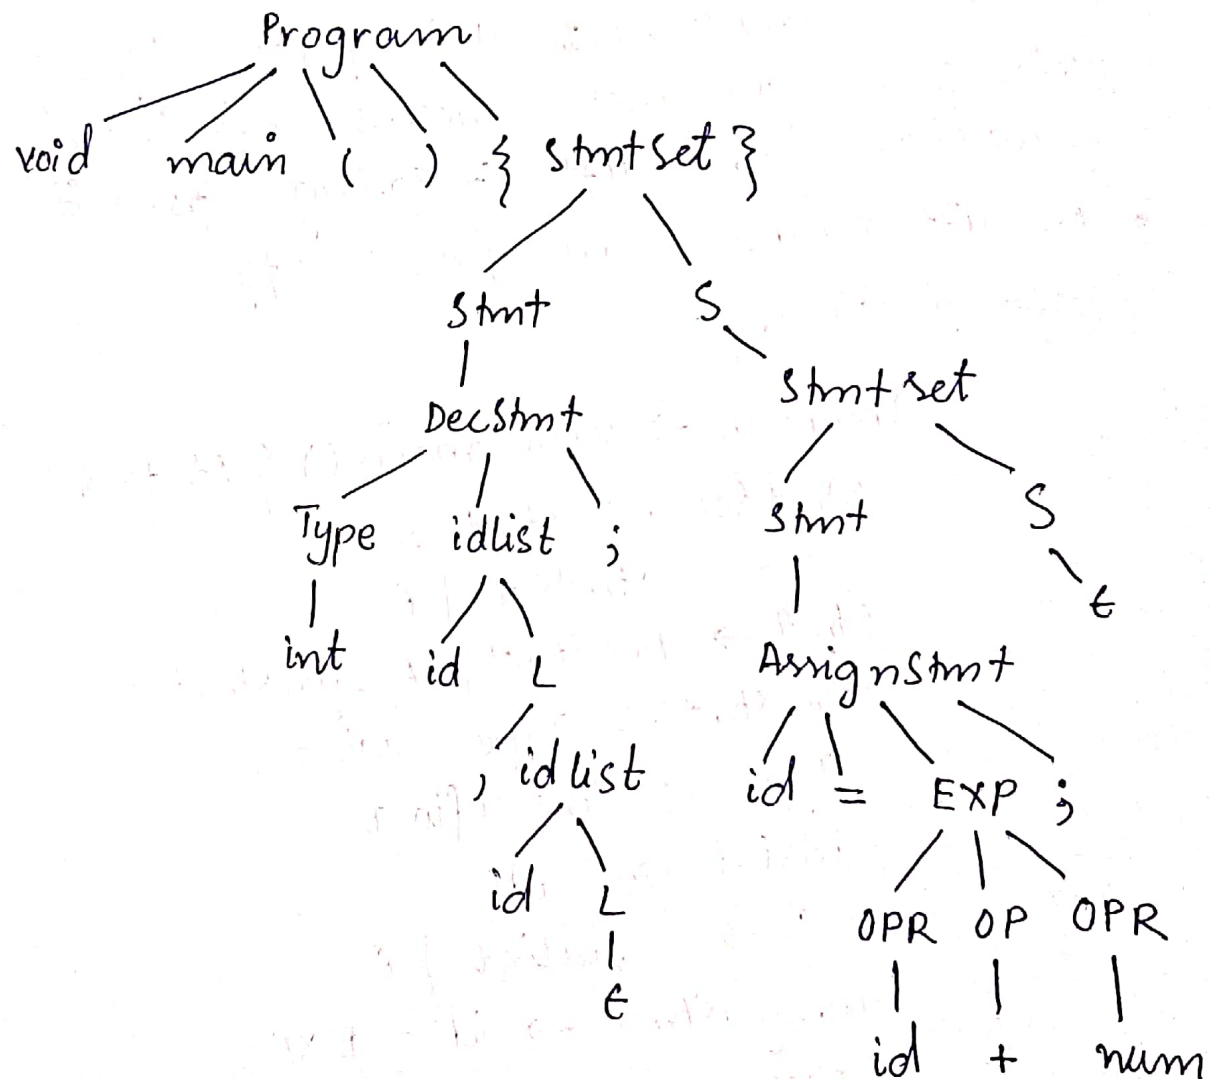 Program
void main ( ) { Stmtset }
Stmt S
Stmtset
DecStmt
Type idlist ; Stmt S
ϵ
int id L AssignStmt
, idlist id = EXP ;
id L OPR OP OPR
ϵ
id + num